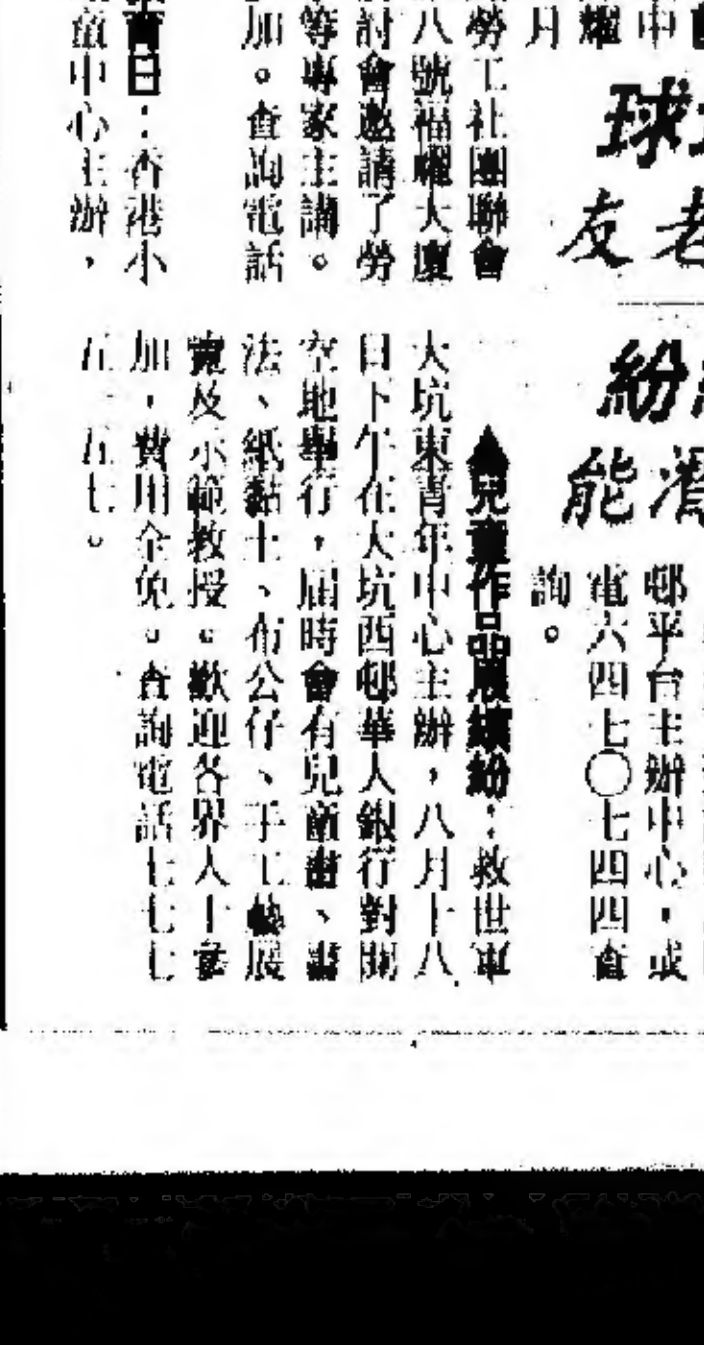 中
耀
月
勞工社團聯會
八號福耀大廈
討會邀請了勞
等專家主講。
加。查詢電話
日：香港小
童中心主辦，
球
老
友
紛
潛
能
邨平台主辦中心，或
電六四七〇七四四查
詢。
▲兒童作品展繽紛：救世軍
大坑東青年中心主辦，八月十八
日下午在大坑西邨華人銀行對開
空地舉行，屆時會有兒童畫、書
法、紙黏土、布公仔、手工藝展
覽及示範教授。歡迎各界人士參
加，費用全免。查詢電話七七七
五 五七。